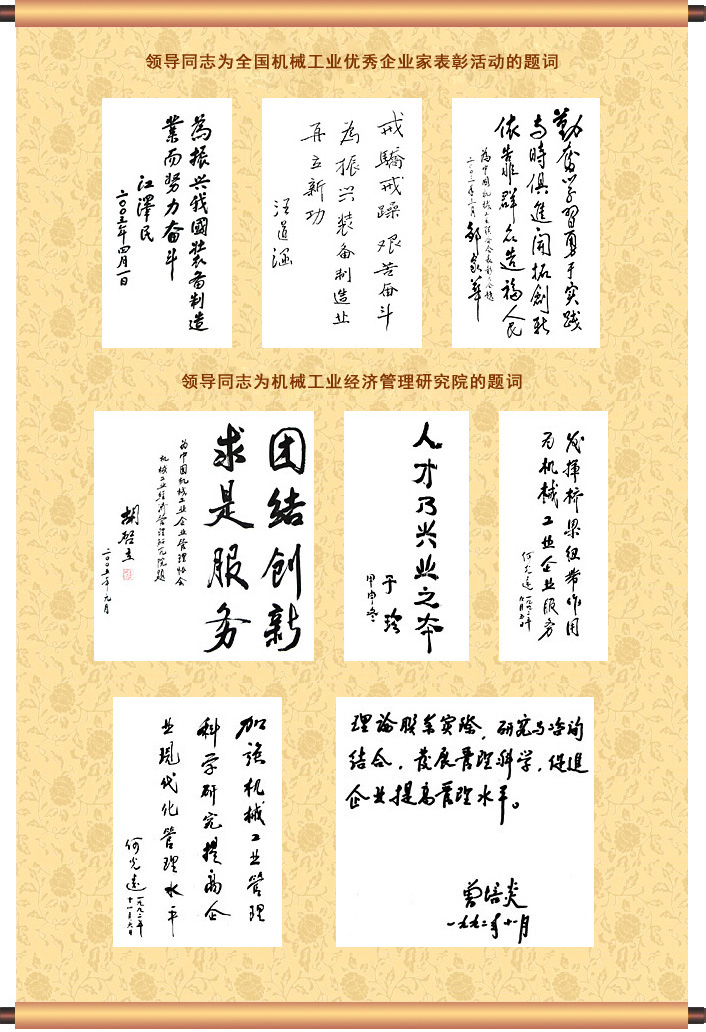 领导同志为全国机械工业优秀企业家表彰活动的题词
為振兴我國装备制造
業而努力奋斗
江澤民
二00三年四月一日
戒驕戒躁艰苦奋斗
為振兴装备制造业
再立新功
汪道涵
勤奋学習勇于实践
与時俱進開拓創新
依靠群众造福人民
邹家華
领导同志为机械工业经济管理研究院的题词
团结创新
求是服务
为中国机械工业企业管理协会
机械工业经济管理研究院题
胡启立
二00五年九月
人才乃兴业之本
于珍
甲申冬
发揮桥梁纽带作用
为机械工业企业服务
何光遠
加强机械工业管理
科学研究提高企
业现代化管理水平
何光遠
一九九二年
十一月六日
理论联系实际，研究与咨询
结合，发展管理科学，促進
企业提高管理水平。
曾培炎
一九九二年十一月